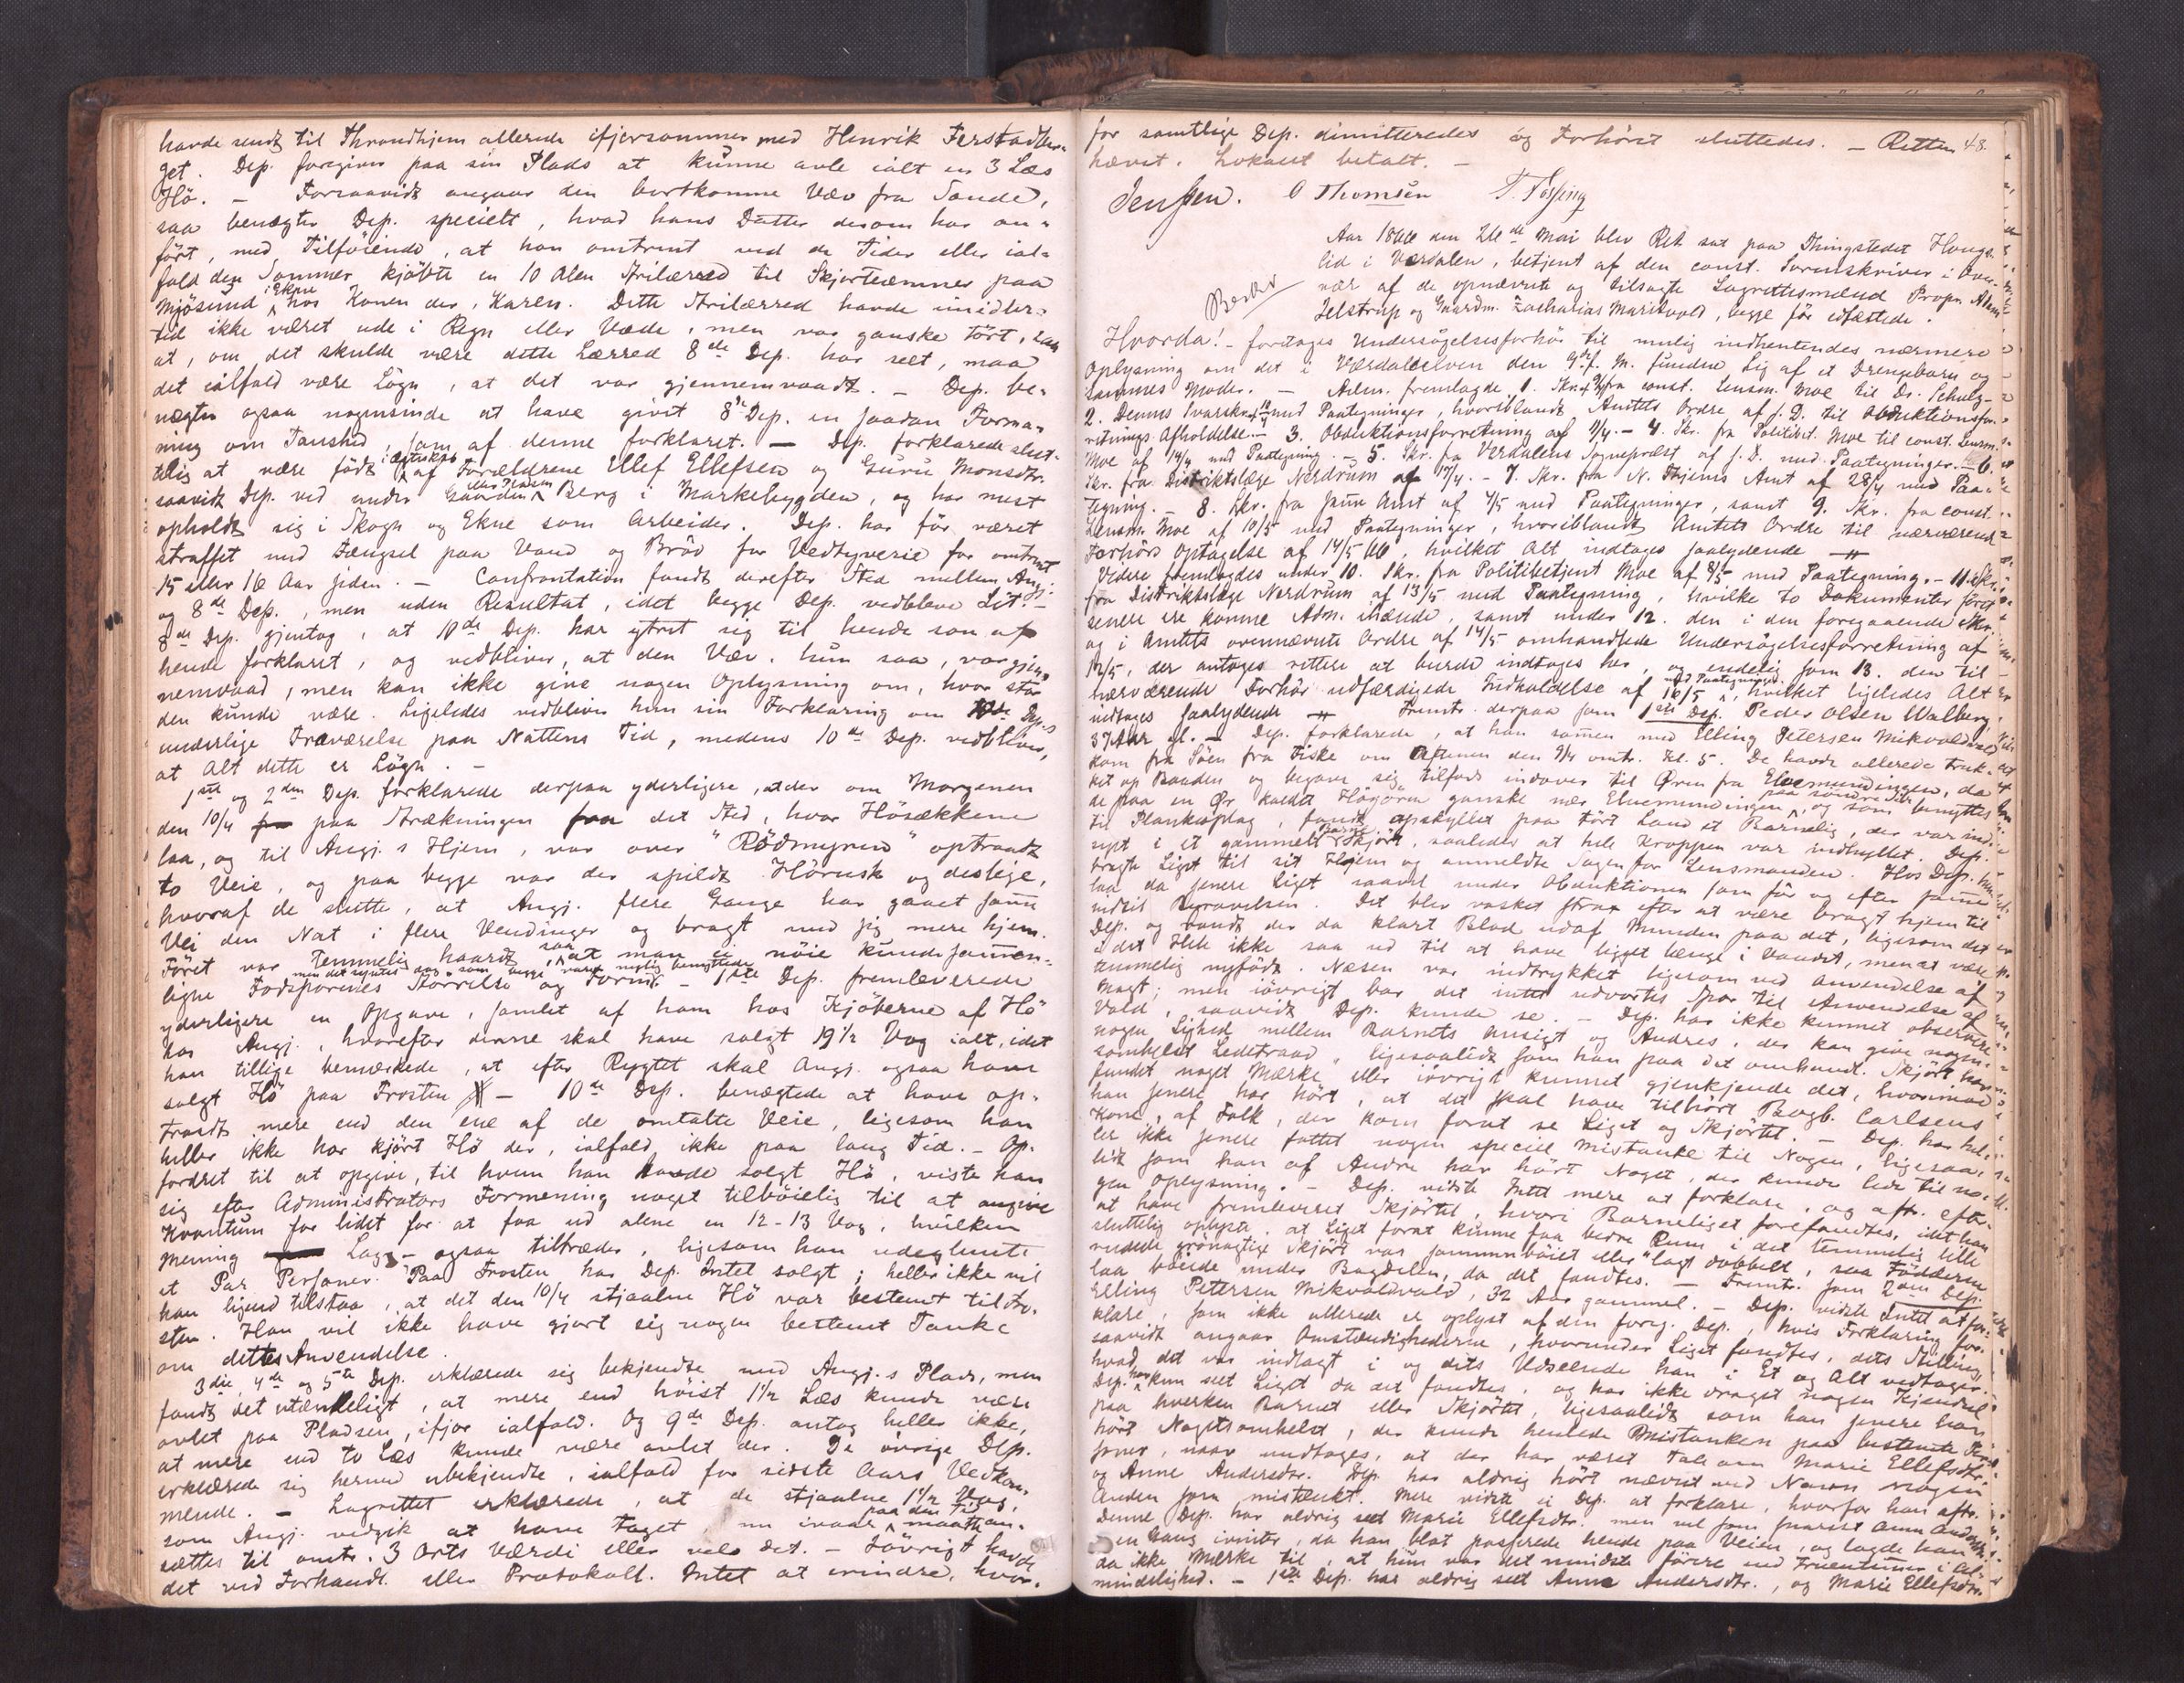 havde sendt til Throndhjem allerede ifjersommer med Henrik Ferstadlun-
get. Dep. foregiver paa sin Plads at kunne avle ialt en 3 Læs
Hö. — Forsaavidt angaar den bortkomne Væv fra Sande,
saa benægter Dep. specielt, hvad hans Datter derom har an-
fört, med Tilföiende, at han omtrent ved de Tider eller ial-
fald den Sommer kjöbte en 10 Alen Strilærred til Skjorteemner paa
Mjösund i Ekne hos Konen der, Karen. Dette Strilærred havde imidler-
tid ikke været ude i Regn eller Væde, men var ganske tört, saa
at, om det skulde være dette Lærred 8de Dep. har seet, maa
det ialfald være Lögn, at det var gjennemvaadt. — Dep. be-
nægter ogsaa nogensinde at have givet 8de Dep. en saadan Forma-
ning om Taushed, som af denne forklaret. — Dep. forklarede slut-
telig at være födt i Ægteskab af Forældrene Ellef Ellefsen og Guru Monsdtr.
saavidt Dep. ved under Gaarden eller Pladsen Berg i Markebygden, og har mest
opholdt sig i Skogn og Ekne som Arbeider. Dep. har för været
straffet med Fængsel paa Vand og Bröd for Vedtyverie for omtrent
15 eller 16 Aar siden. — Confrontation fandt derefter Sted mellem Angj.
og 8de Dep., men uden Resultat, idet begge Dep. vedbleve Sit. —
8de Dep. gjentog, at 10de Dep. har ytret sig til hende som af
hende forklaret, og vedbliver, at den Væv, hun saa, var gjen-
nemvaad, men kan ikke give nogen Oplysning om, hvor stor
den kunde være. Ligeledes vedbliver hun sin Forklaring om 10de Dep.s
underlige Fraværelse paa Nattens Tid, medens 10de Dep. vedbliver,
at Alt dette er Lögn. —
1ste og 2den Dep. forklarede derpaa yderligere, at der om Morgenen
den 10/4 paa Strækningen fra det Sted, hvor Hösækkene
laa, og til Angj.s Hjem, var over "Rödmyren" optraadt
to Veie, og paa begge var der spildt Hörusk og deslige,
hvoraf de slutte, at Angj. flere Gange har gaaet samme
Vei den Nat i flere Vendinger og bragt med sig mere hjem.
Föret var temmelig haardt, saa at man ei nöie kunde sammen-
ligne Fodsporenes Störrelse og Form, men det syntes dog som begge vare nylig benyttede. — 1ste Dep. fremleverede
yderligere en Opgave, samlet af ham hos Kjöberne af Hö
hos Angj., hvorefter denne skal have solgt 19 1/2 Vog ialt, idet
han tillige bemærkede, at efter Rygtet skal Angj. ogsaa have
solgt Hö paa Frosten — 10de Dep. benægtede at have op-
traadt mere end den ene af de omtalte Veie, ligesom han
heller ikke har kjört Hö der, ialfald ikke paa lang Tid. — Op-
fordret til at opgive, til hvem han havde solgt Hö, viste han
sig efter Administrators Formening noget tilböielig til at angive
Kvantum for lidet for at faa ud alene en 12-13 Vog, hvilken
Mening Lagr. ogsaa tiltræder, ligesom han udeglemte
et Par Personer. Paa Frosten har Dep. Intet solgt; heller ikke vil
han ligend tilstaa, at det den 10/4 stjaalne Hö var bestemt til Fro-
sten. Han vil ikke have gjort sig nogen bestemt Tanke
om dettes Anvendelse.
3die, 4de og 5te Dep. erklærede sig bekjendte med Angj.s Plads, men
fandt det utænkeligt, at mere end höist 1 1/2 Læs kunde være
avlet paa Pladsen, ifjor ialfald. Og 9de Dep. antog heller ikke,
at mere end to Læs kunde være avlet der. De övrige Dep.
erklærede sig herved ubekjendte, ialfald for sidste Aars Vedkom-
mende. — Lagrettet erklærede, at de stjaalne 1 1/2 Vog,
som Angj. vedgik at have taget paa den Tid maatte an-
sættes til omtr. 3 Orts Værdi eller vel det. — Iövrigt havde
det ved Forhandl. eller Protokoll. Intet at erindre, hvor-
for samtlige Dep. dimitteredes og Forhöret sluttedes. — Retten 48.
hævet. Lokalet betalt. —
Jenssen. O Thomsen T. Fossing
Aar 1866 den 26de Mai blev Ret sat paa Thingstedet Haugs-
lid i Værdalen, betjent af den const. Sorenskriver i Over-
vær af de opnævnte og tilsagte Lagrettesmænd Propr. Adam
Jelstrup og Gaardm. Zacharias Maritvold, begge för edfæstede.
Hvorda! — foretoges Undersögelsesforhör til mulig indhentendes nærmere
Oplysning om det i Værdalselven den 9de f. M. fundne Lig af et Drengebarn og
sammes Moder. — Adm. fremlagde 1. Skr. af 9/4 fra const. Lensm. Moe til Dr. Schulz —
2. Dennes Svarskr. af 10/4 med Paategninger, hvoriblandt Amtets Ordre af s. D. til Obduktionsfor-
retnings Afholdelse. — 3. Obduktionsforretning af 11/4. — 4. Skr. fra Politibet. Moe til const. Lensm.
Moe af 14/4 med Paategning. — 5. Skr. fra Verdalens Sognepræst af s. D. med Paategninger. — 6.
Skr. fra Distriktslæge Nordrum af 17/4. — 7. Skr. fra N. Thjems Amt af 28/4 med Paa-
tegning. — 8. Skr. fra samme Amt af 4/5 med Paategninger, samt 9. Skr. fra const.
Lensm. Moe af 10/5 med Paategninger, hvoriblandt Amtets Ordre til nærværende
Forhörs Optagelse af 14/5 66, hvilket Alt indtages saalydende
Videre fremlagdes under 10. Skr. fra Politibetjent Moe af 8/5 med Paategning. — 11. Skr.
fra Distriktslæge Nordrum af 13/5 med Paategning, hvilke to Dokumenter först
senere ere komne Adm. ihænde, samt under 12. den i den foregaaende Skr.
og i Amtets ovennævnte Ordre af 14/5 omhandlede Undersögelsesforretning af
12/5, der antages rettere at burde indtages her, og endelig som 13. den til
nærværende Forhör udfærdigede Indkaldelse af 16/5 med Paategninger, hvilket ligeledes Alt
indtages saalydende Fremst. derpaa som 1ste Dep. Peder Olsen Walberg,
37 Aar gl. — Dep. forklarede, at han sammen med Elling Petersen Mikvoldvald
kom fra Söen fra Fiske om Aftenen den 9/4 omtr. Kl. 5. De havde allerede truk-
ket op Baaden og begave sig tilfods indover til Øren fra Elvemundingen, da
de paa en Ør kaldt Högören ganske nær Elvemundingen paa söndre Side, og som benyttes
til Plankeoplag, fandt opskyllet paa tört Land et Barnelig, der var ind-
svöpt i et gammelt Barneskjört, saaledes at hele Kroppen var indhyllet. Dep.
bragte Liget til sit Hjem og anmeldte Sagen for Lensmanden. Hos Dep.
laa da senere Liget saavel under Obduktionen som för og efter samme
indtil Begravelsen. Det blev vasket strax efter at være bragt hjem til
Dep. og randt der da klart Blod udaf Munden paa det, ligesom det
i det Hele ikke saa ud til at have ligget længe i Vandet, men at være
temmelig nyfödt. Næsen var indtrykket ligesom ved Anvendelse af
Magt; men iövrigt bar det intet udvortes Spor til Anvendelse af
Vold, saavidt Dep. kunde se. — Dep. har ikke kunnet observere
nogen Lighed mellem Barnets Ansigt og Andres, der kan give nogen-
somhelst Ledetraad, ligesaalidt som han paa det omhandl. Skjört har
fundet noget Mærke eller iövrigt kunnet gjenkjende det, hvorimod
han senere har hört, at det skal have tilhört Bagb. Carlsens
Kone, af Folk, der kom forat se Liget og Skjörtet. — Dep. har hel-
ler ikke senere fattet nogen speciel Mistanke til Nogen, ligesaa-
lidt som han af Andre har hört Noget, der kunde lede til no-
gen Oplysning. — Dep. vidste Intet mere at forklare, og aftr. efter
at have fremleveret Skjörtet, hvori Barneliget forefandtes, idet han
sluttelig oplyste, at Liget forat kunne faa bedre Rum i det temmelig lille
rudede grönagtige Skjört var sammenböiet eller lagt dobbelt, saa Födderne
laa böiede under Bagdelen, da det fandtes. — Fremst. som 2den Dep.
Elling Petersen Mikvoldvald, 32 Aar gammel. — Dep. vidste Intet at for-
klare, som ikke allerede er oplyst af den foreg. Dep., hvis Forklaring, for-
saavidt angaar Omstændighederne, hvorunder Liget fandtes, dets Stilling,
hvad det var indlagt i og dets Udseende han i Et og Alt vedtager.
Dep. har kun seet Liget da det fandtes, og har ikke draget nogen Kjendsel
paa hverken Barnet eller Skjörtet, ligesaalidt som han senere har
hört Nogetsomhelst, der kunde henlede Mistanken paa bestemte Per-
soner, naar undtages, at der har været Tale om Marie Ellefsdtr.
og Anne Andersdtr. Dep. har aldrig hört nævnt ved Navn nogen
Anden som mistænkt. Mere vidste ei Dep. at forklare, hvorfor han aftr.
Denne Dep. har aldrig seet Marie Ellefsdtr. men vel Anne Andersdtr.
en Gang ivinter, da han blot passerede hende paa Veien, og lagde han
da ikke Mærke til, at hun var det mindste förere end Fruentimmer i Al-
mindelighed. — 1ste Dep. har aldrig seet Anne Andersdtr., og Marie Ellefsdtr.